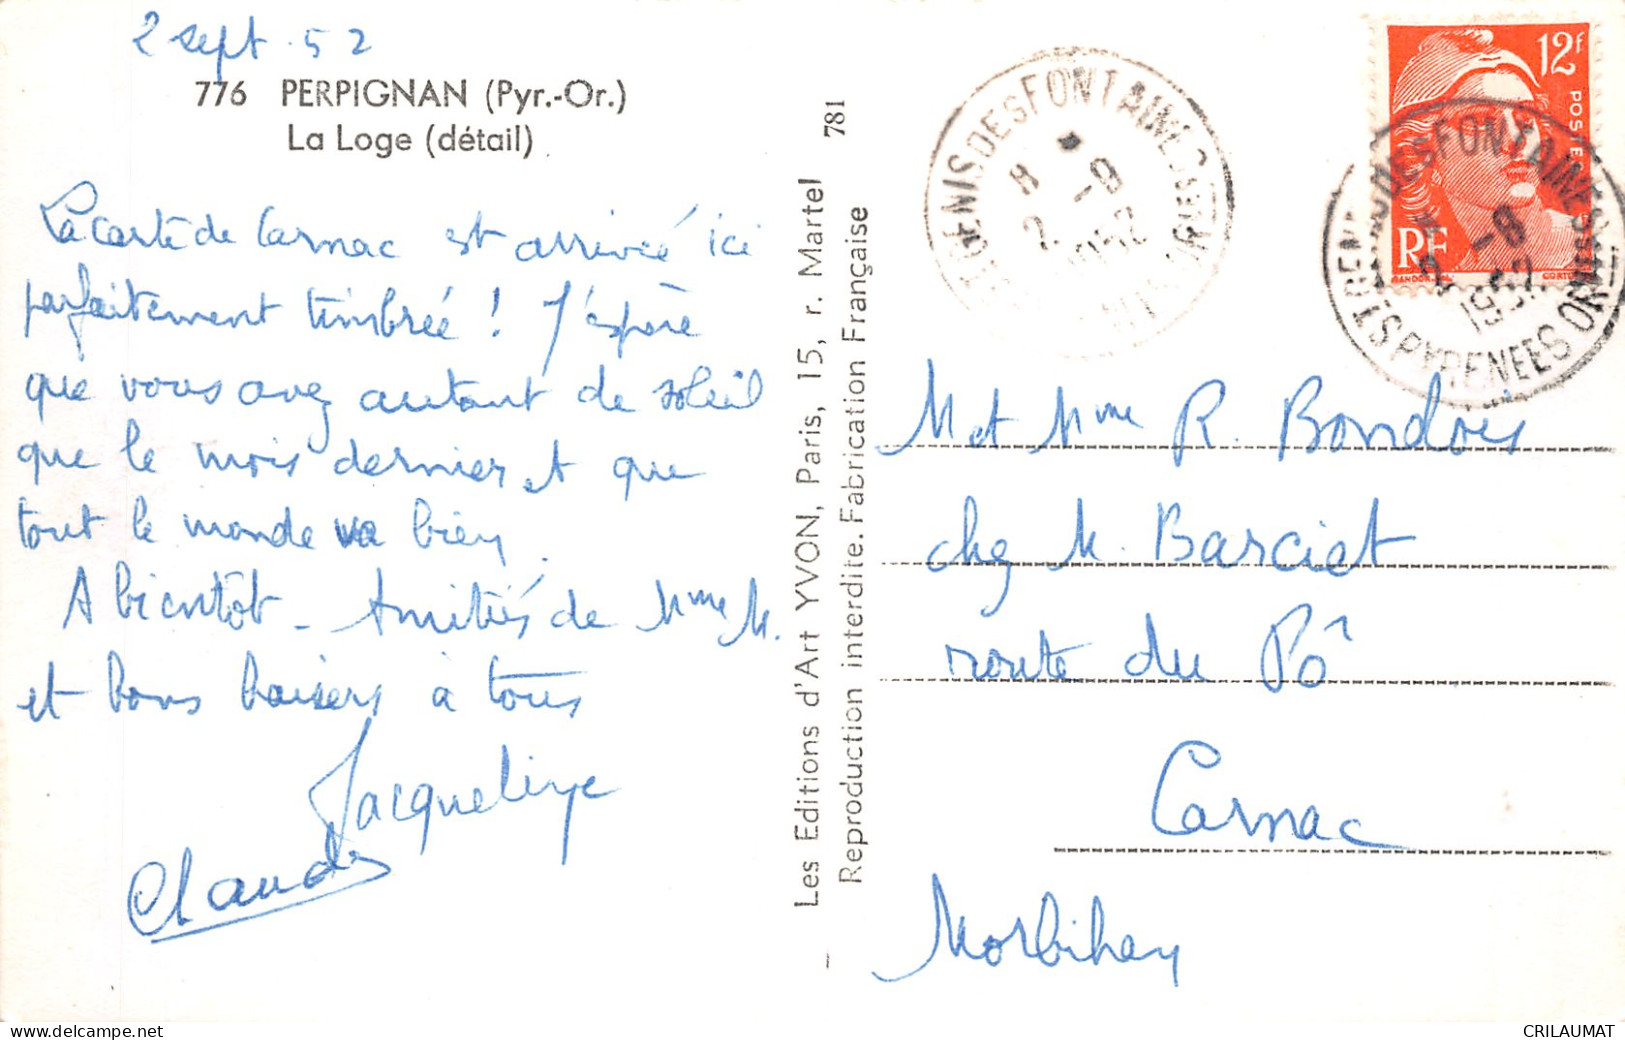 2 sept. 52
776 PERPIGNAN (Pyr.-Or.)
La Loge (détail)
La carte de Carnac est arrivée ici
parfaitement timbrée ! J'espère
que vous avez autant de soleil
que le mois dernier et que
tout le monde va bien.
A bientôt - Amitiés de Mme M.
et bons baisers à tous
Jacqueline
Claude
Les Editions d'Art YVON, Paris, 15, r. Martel
Reproduction interdite. Fabrication Française
781
12f
POSTES
RF
GANDON
DESFONTAINES
PYRENEES
M et Mme R. Bondois
chez M. Basciet
route du Pô
Carnac
Morbihan
delcampe.net
CRILAUMAT